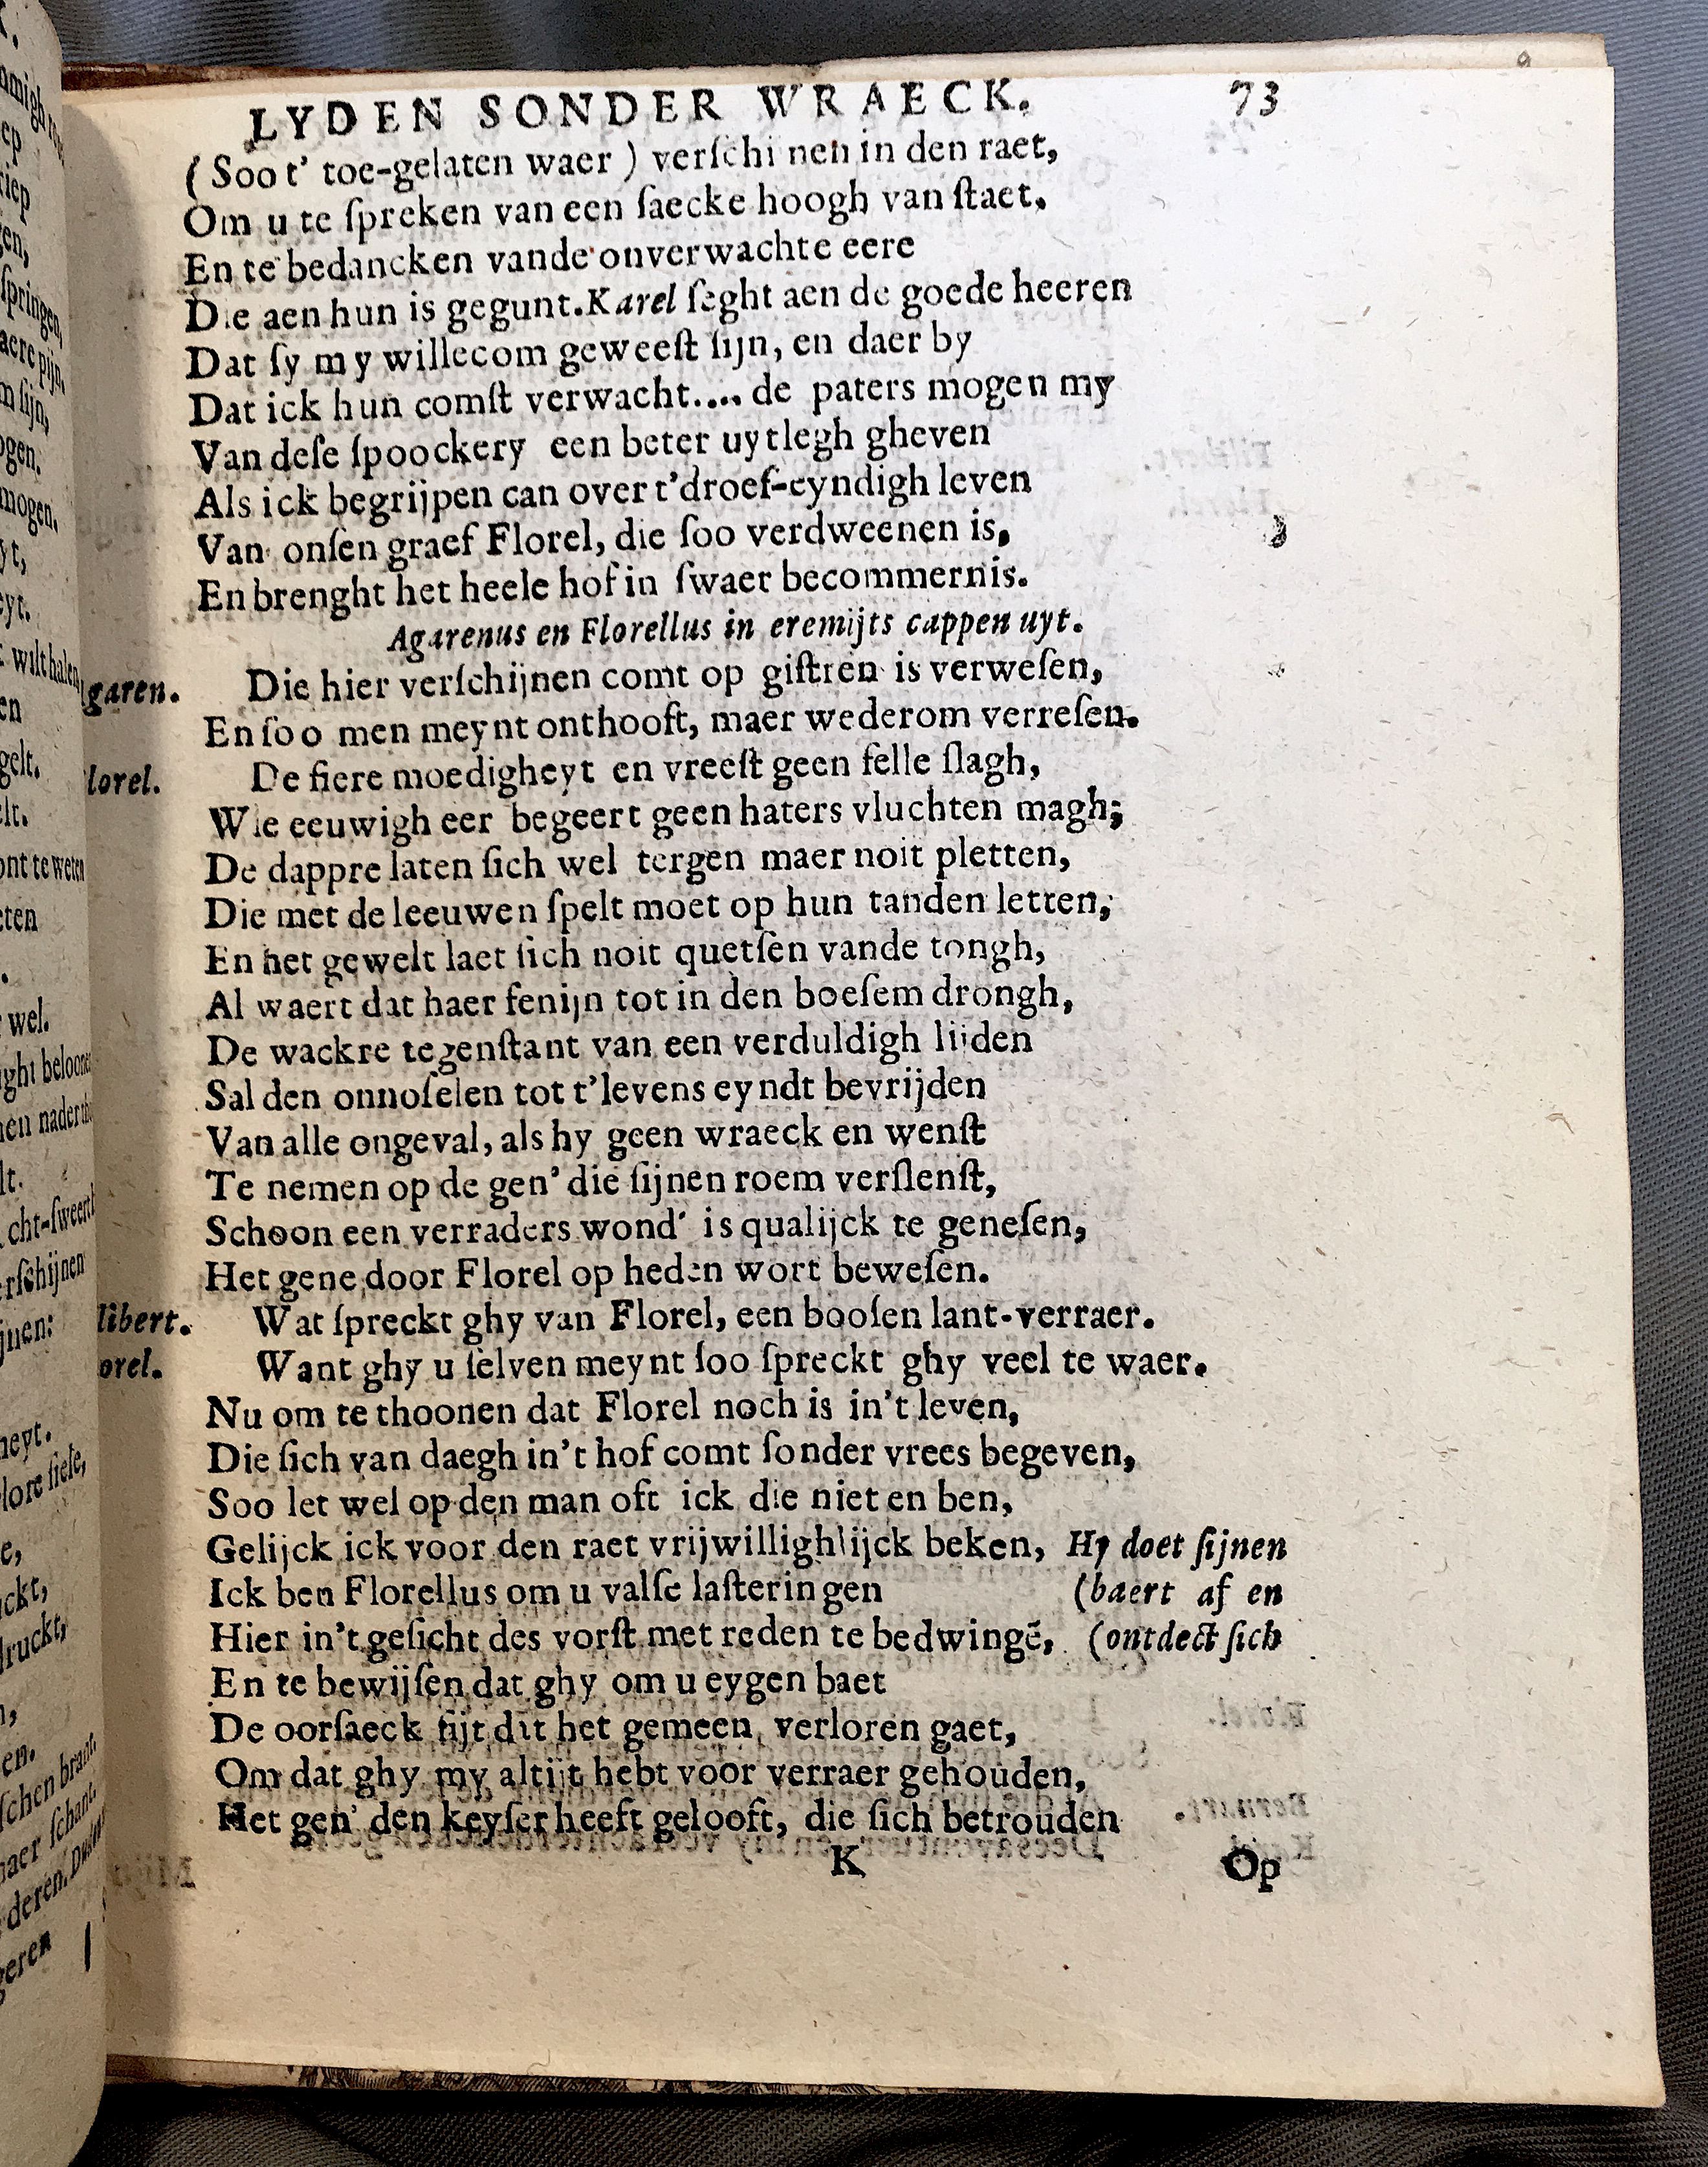 LYDEN SONDER WRAECK. 73
(Soo t' toe-gelaten waer) verſchi nen in den raet,
Om u te ſpreken van een ſaecke hoogh van ſtaet,
En te bedancken vande onverwachte eere
Die aen hun is gegunt. Karel ſeght aen de goede heeren
Dat ſy my willecom geweeſt ſijn, en daer by
Dat ick hun comſt verwacht.... de paters mogen my
Van deſe ſpoockery een beter uytlegh gheven
Als ick begrijpen can over t'droef-eyndigh leven
Van onſen graef Florel, die ſoo verdweenen is,
En brenght het heele hof in ſwaer becommernis.
Agarenus en Florellus in eremijts cappen uyt.
garen. Die hier verſchijnen comt op giſtren is verweſen,
En ſoo men meynt onthooft, maer wederom verreſen.
lorel. De fiere moedigheyt en vreeſt geen felle ſlagh,
Wie eeuwigh eer begeert geen haters vluchten magh;
De dappre laten ſich wel tergen maer noit pletten,
Die met de leeuwen ſpelt moet op hun tanden letten,
En het gewelt laet ſich noit quetſen vande tongh,
Al waert dat haer fenijn tot in den boeſem drongh,
De wackre tegenſtant van een verduldigh lijden
Sal den onnoſelen tot t'levens eyndt bevrijden
Van alle ongeval, als hy geen wraeck en wenſt
Te nemen op de gen' die ſijnen roem verſlenſt,
Schoon een verraders wond' is qualijck te geneſen,
Het gene door Florel op heden wort beweſen.
libert. Wat ſpreckt ghy van Florel, een booſen lant-verraer.
orel. Want ghy u ſelven meynt ſoo ſpreckt ghy veel te waer.
Nu om te thoonen dat Florel noch is in't leven,
Die ſich van daegh in't hof comt ſonder vrees begeven,
Soo let wel op den man oft ick die niet en ben,
Gelijck ick voor den raet vrijwillighlijck beken, Hy doet ſijnen
Ick ben Florellus om u valſe laſteringen (baert af en
Hier in't geſicht des vorſt met reden te bedwingē, (ontdect ſich
En te bewijſen dat ghy om u eygen baet
De oorſaeck ſijt dit het gemeen verloren gaet,
Om dat ghy my altijt hebt voor verraer gehouden,
Het gen' den keyſer heeft gelooft, die ſich betrouden
K Op